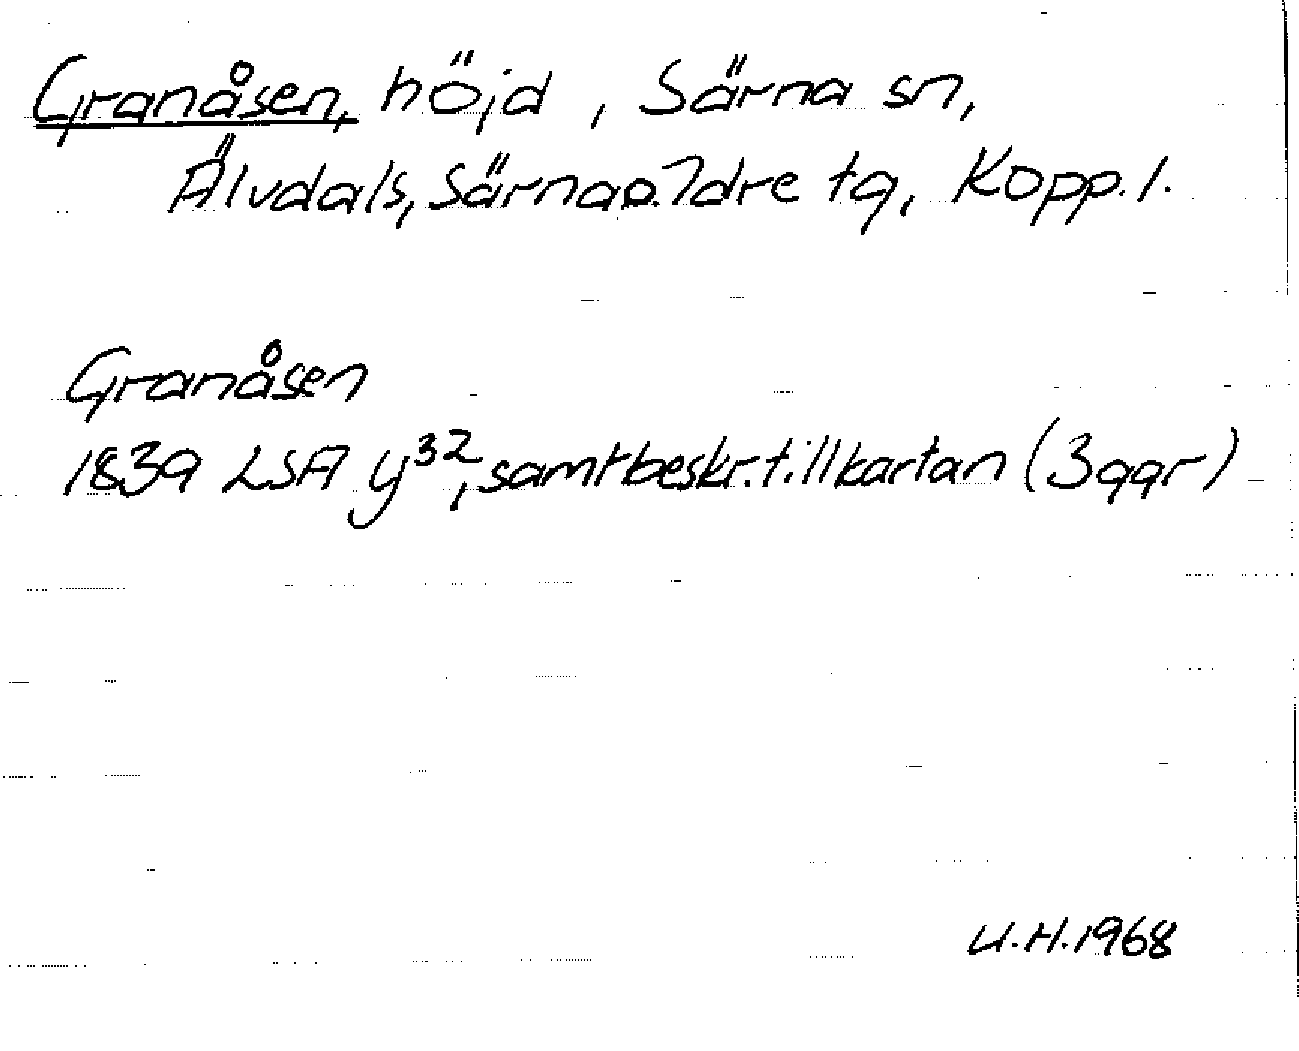 Granåsen, höjd, Särna sn,
Älvdals, Särna o. Idre tg, Kopp. l.
Granåsen
1839 LSA y³², samt beskr. till kartan (3 ggr)
U.H. 1968